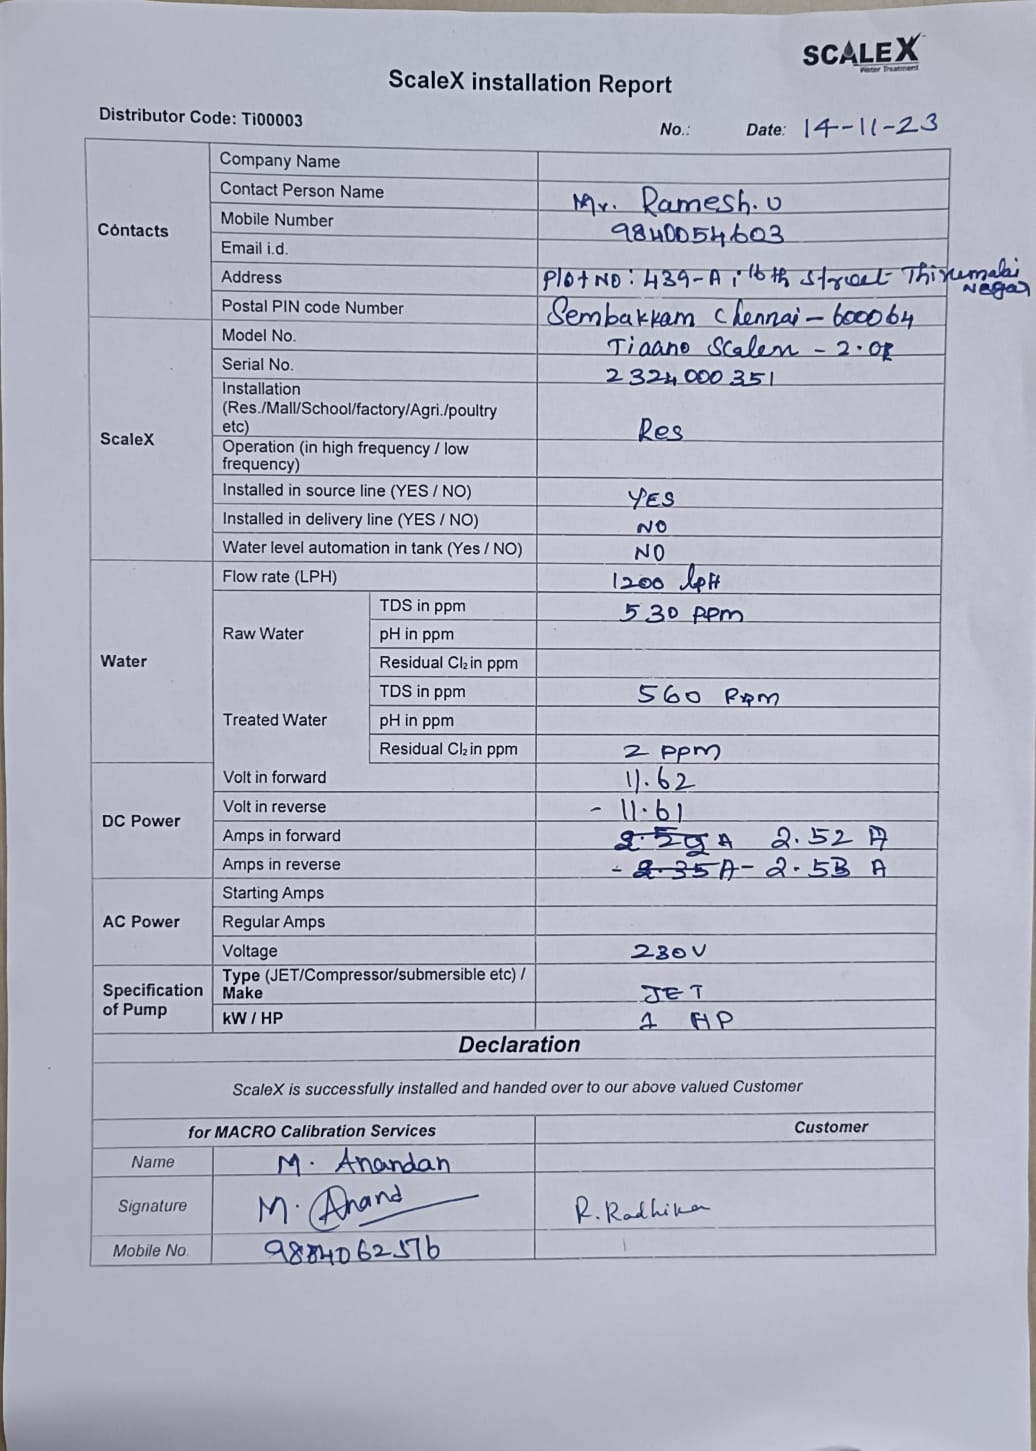 SCALEX
Water Treatment
ScaleX installation Report
Distributor Code: Ti00003
No.: Date: 14-11-23
Contacts
Company Name
Contact Person Name Mr. Ramesh. U
Mobile Number 9840054603
Email i.d.
Address Plot NO: 439-A, 16th Street Thirumalai Nagar
Postal PIN code Number Sembakkam Chennai - 600064
ScaleX
Model No. Tiaano Scalen - 2.0R
Serial No. 2324000351
Installation
(Res./Mall/School/factory/Agri./poultry
etc) Res
Operation (in high frequency / low
frequency)
Installed in source line (YES / NO) YES
Installed in delivery line (YES / NO) NO
Water level automation in tank (Yes / NO) NO
Water
Flow rate (LPH) 1200 lpH
Raw Water
TDS in ppm 530 ppm
pH in ppm
Residual Cl2 in ppm
Treated Water
TDS in ppm 560 ppm
pH in ppm
Residual Cl2 in ppm 2 ppm
DC Power
Volt in forward 11.62
Volt in reverse - 11.61
Amps in forward A 2.52 A
Amps in reverse - 2.35 A - 2.53 A
AC Power
Starting Amps
Regular Amps
Voltage 230V
Specification
of Pump
Type (JET/Compressor/submersible etc) /
Make JET
kW / HP 1 HP
Declaration
ScaleX is successfully installed and handed over to our above valued Customer
for MACRO Calibration Services Customer
Name M. Anandan
Signature M. Anand R. Radhika
Mobile No. 9884062576